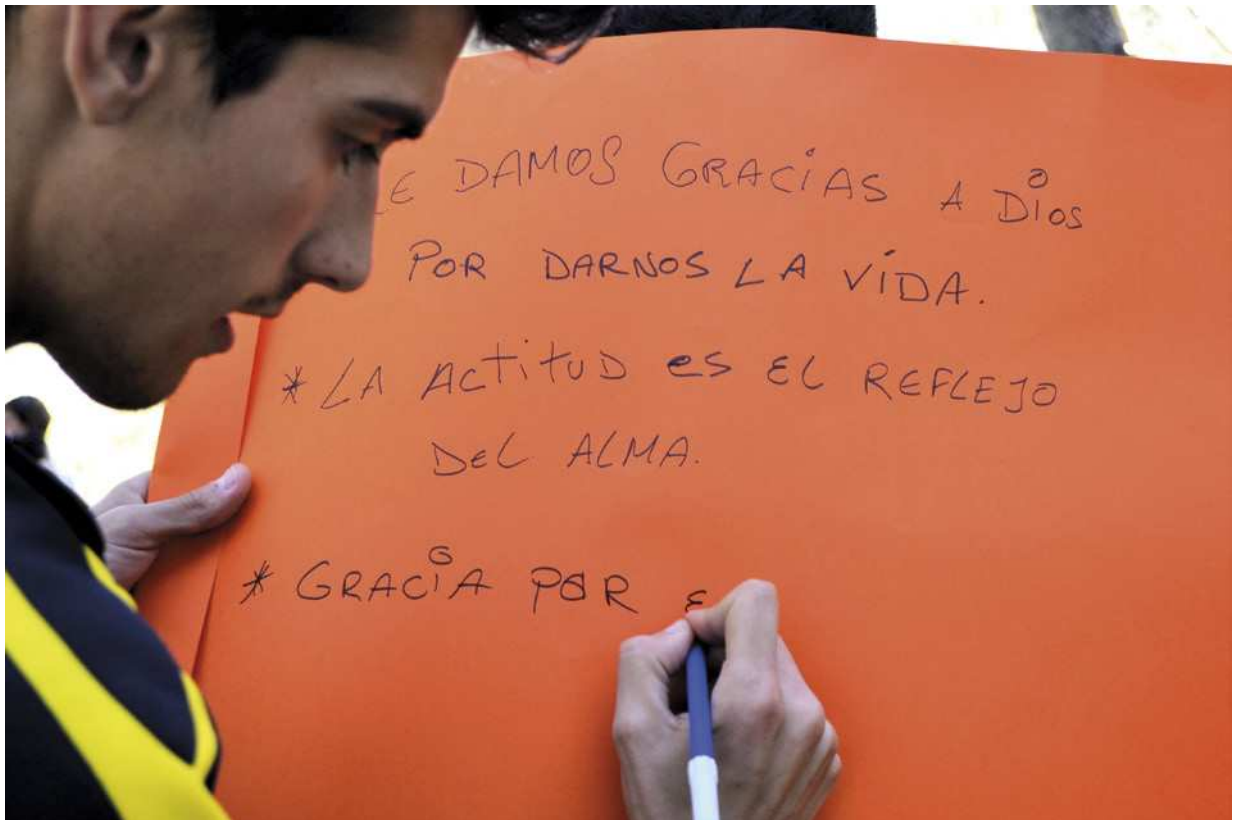 E DAMOS GRACIAS A DIOS
POR DARNOS LA VIDA.
* LA ACTITUD es EL REFLEJO
DEL ALMA.
* GRACIA POR E